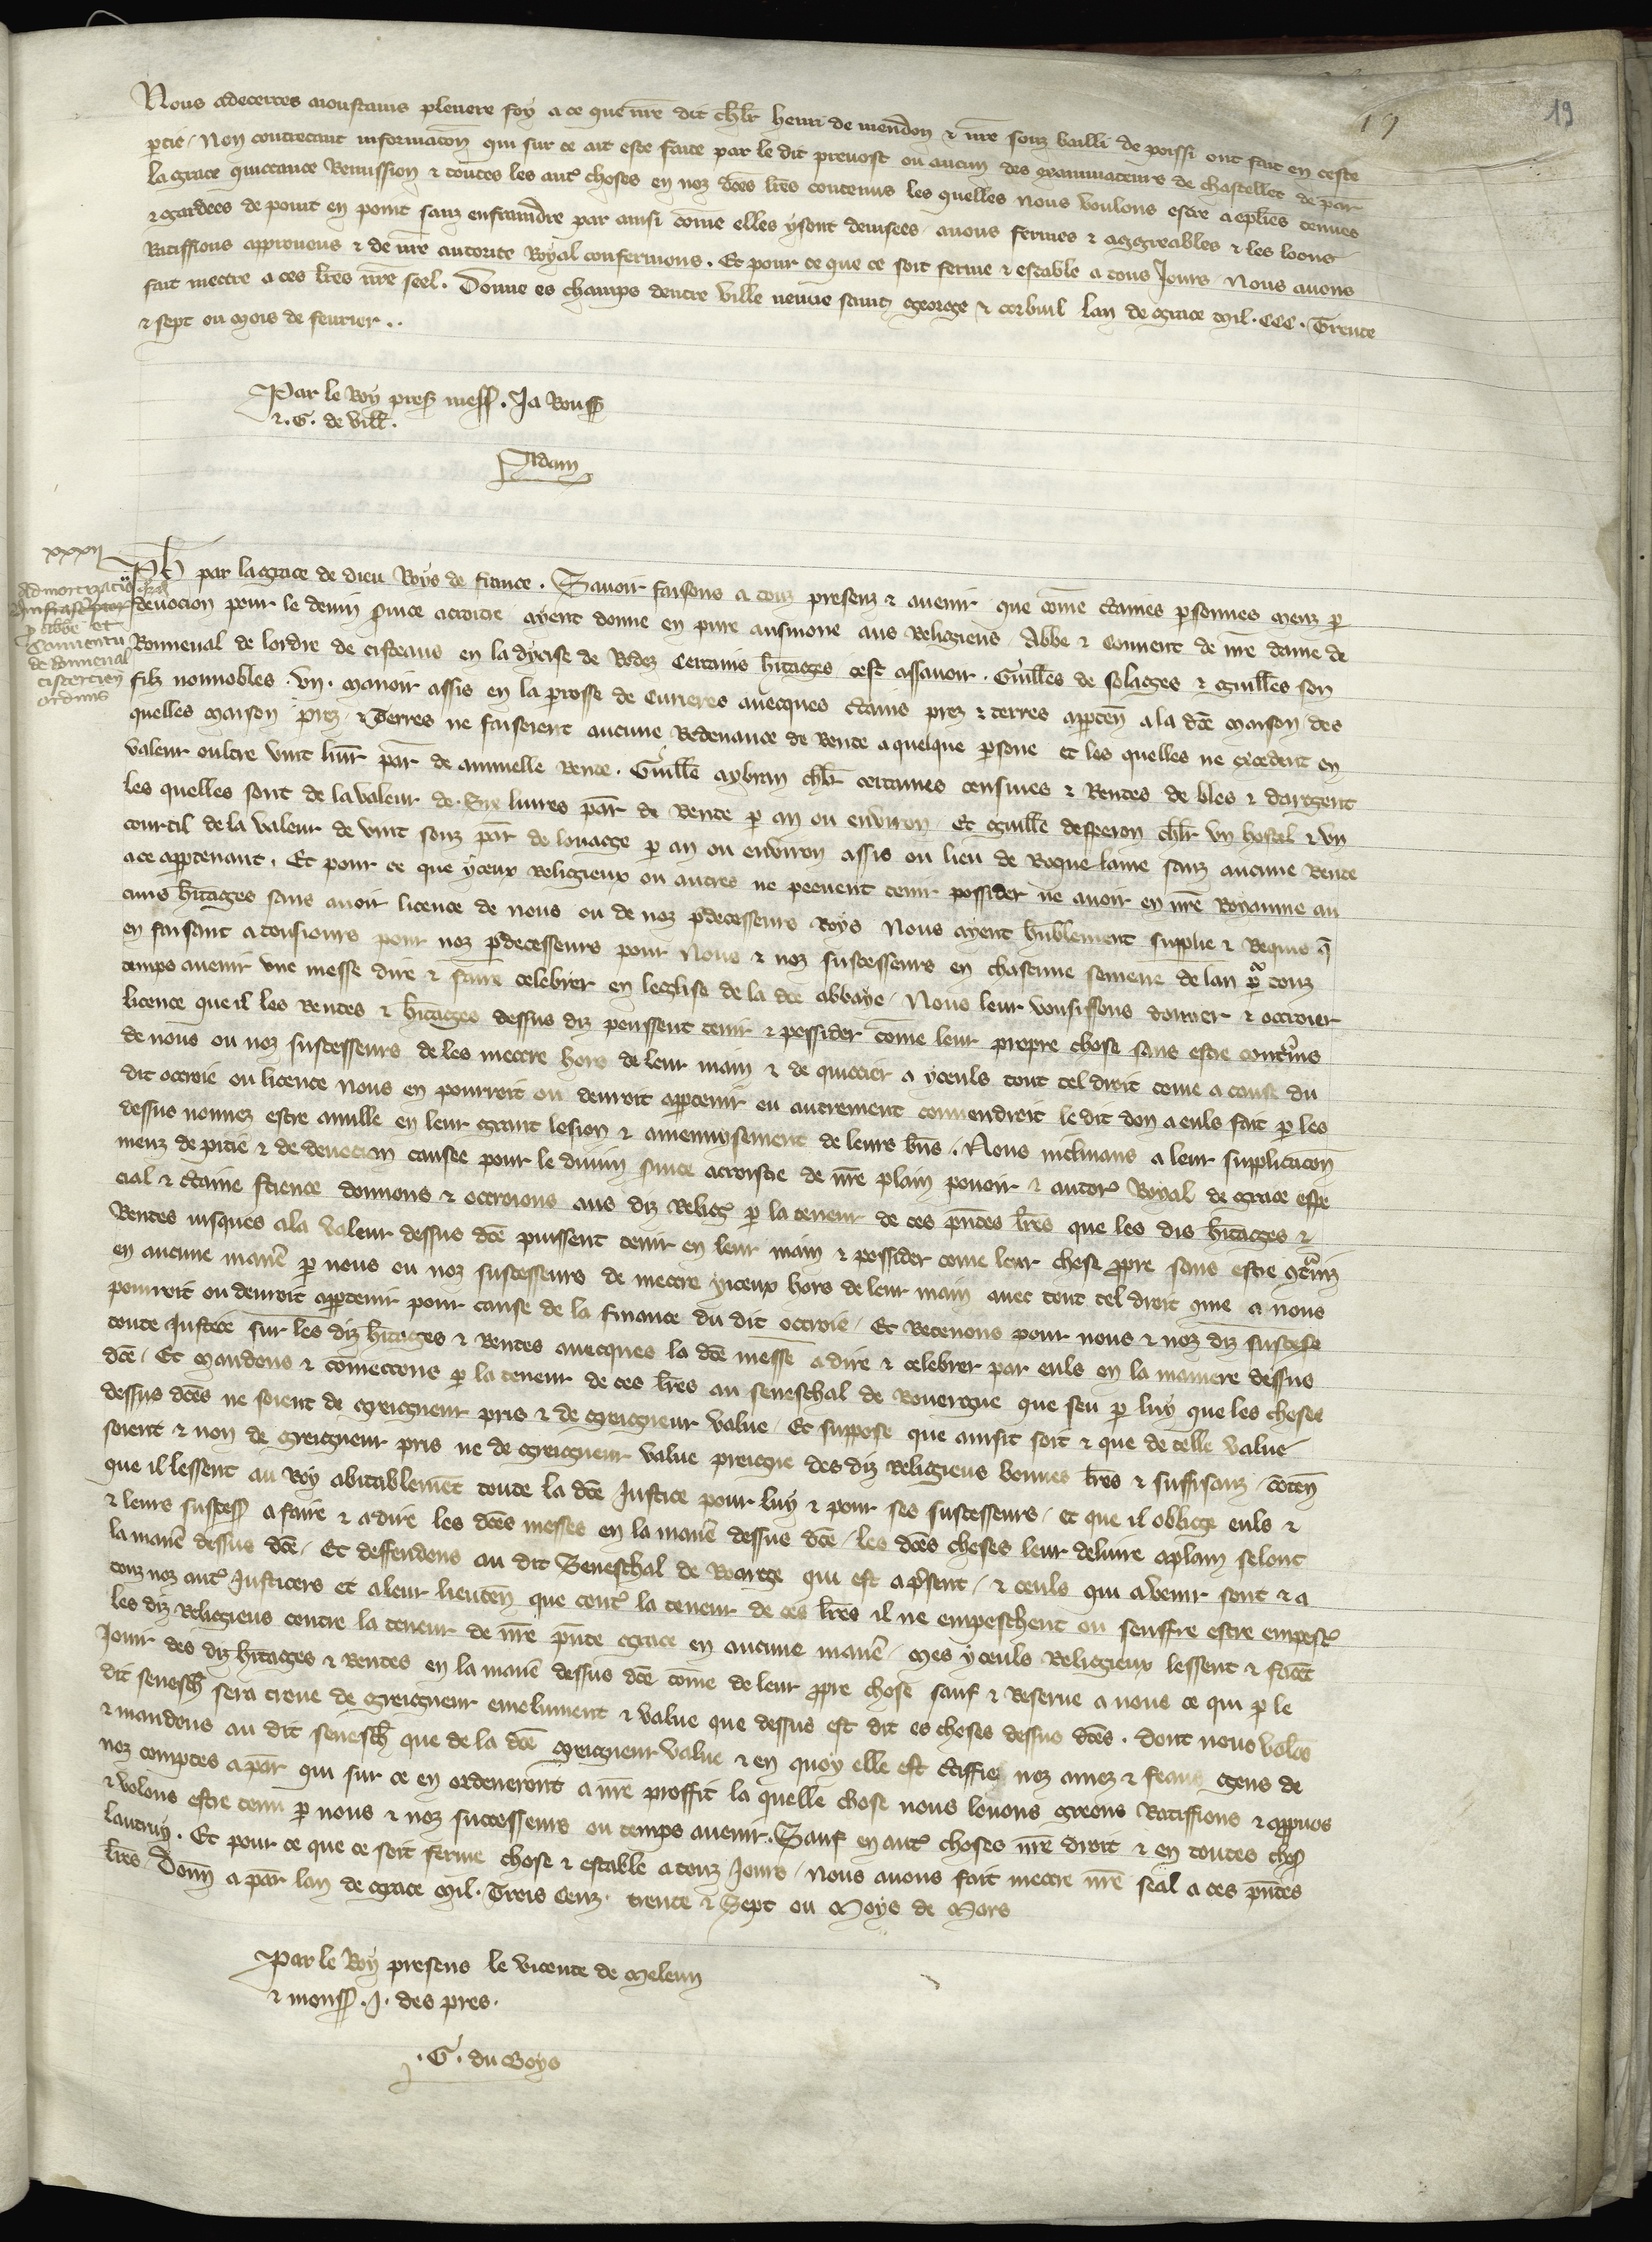 19
19
Nous adecertes aioustanis pleniere foy a ce que nr̃e dit chlr̃ henri de meudon & nr̃e souz bailli de poissi ont fait en ceste
ptie / Non contrestant informacõn qui sur ce ait este faite par le dit prevost ou aucun des examinateurs de chastellet de par
la grace quittance Remission & toutes les aut̾ choses en noz dc̃es lr̃es contenus les quelles nous voulons estre acõplies tenues
& gardees de point en point sanz enfraindre par ainsi com̃e elles y sont deuisees / auons fermes & aggreables & les loons
Ratiffions approuons & de nr̃e autorite Royal confermons . Et pour ce que ce soit ferme & estable a tous Jours Nous auons
fait mettre a ces lr̃es nr̃e seel . Donne es champs dentre ville neuue saint george & corbuil lan de grace Mil . CCC . Trente
& sept ou mois de feurier . .
Par le Roy pres̃ mess̃ . Ja Rouss̃
& . G . de vill̃ .
Adam
xxxij
Admortizacio
p̱ abbe et
Conuentu
de Boneual
cistercien̄
ordinis
Ph̃ par la grace de dieu Roys de france . Sauoir faisons a touz presenz & auenir que com̃e ct̃aines p̱sonnes meuz p̱
deuocion pour le deuin s̾uice accroire ayent donne en pure ausmone aus Religieus Abbe & Conuent de nr̃e dame de
Bonneual de lordre de cisteaus en la dyocise de Rodez Certains hr̃itages cest assauoir . Guill̃es de solages & guill̃es son
filz nonnobles . vn . manoir assis en la p̱rosse de Curieres auecques ct̃ains prez & terres app̱ten̄ a la dc̃e maison / des
quelles maison prez & Terres ne faisoient aucune Redeuance de Rente a quelque p̱sone et les quelles ne excedent en
valeur oultre vint liur̃ par̃ de annuelle Rente . Guill̃e aybrin chlr̃ certaines censiues & Rentes de bles & dargent
les quelles sont de la valeur de . Six liures par̃ de Rente p̱ an ou enuiron Et guill̃e desperon chlr̃ vn hostel & vn
courtil de la valeur de vint souz par̃ de louage p̱ an ou enuiron assis ou lieu de Roque laine sanz aucune Rente
a ce app̱tenant . Et pour ce que yceux Religieux ou autres ne peeuent tenir possider ne auoir en nr̃e Royaume au
cuns hr̃itages sans auoir licence de nous ou de noz p̱decesseurs Roys Nous ayent hũblement supplie & Requis q̃
en faisant a tousiours pour noz p̱decesseurs pour Nous & noz successeurs en chascune semene de lan p̱ touz
temps auenir vne messe dire & faire celebrer en leglise de la dc̃e abbaye / Nous leur vousissions donner & octroier
licence que il les Rentes & hr̃itages dessus diz peussent tenir & possider com̃e leur propre chose sans estre contrains
de nous ou noz successeurs de les mettre hors de leur main & de quittier a yceuls tout tel droit come a cause du
dit octroie ou licence nous en pourroit ou deuroit app̱tenir ou autrement conuendroit le dit don a euls fait p̱ les
dessus nonmez estre anulle en leur grant lesion & amenuysement de leurs bñs . Nous inclinans a leur supplicacõn
meuz de pitie & de deuocion causee pour le diuin s̾uice acroistre de nr̃e plain pouoir & autor̾ Royal de grace espe
cial & ct̃aine science donnons & octroions aus diz Relig̾ p̱ la teneur de ces pñtes lr̃es que les dis hr̃itages &
Rentes iusques a la valeur dessus dc̃e puissent tenir en leur main & possider come leur chose p̱pre sans estre ꝯtrainz
en aucune mañe p̱ nous ou noz successeurs de mettre yceux hors de leur main auec tout tel droit ꝯme a nous
pourroit ou deuroit app̱tenir pour cause de la finance du dit octroie / Et Retenons pour nous & noz diz succese
toute Justice sur les diz hr̃itages & Rentes auecques la dc̃e messe a dire & celebrer par euls en la maniere dessus
dc̃e / Et Mandons & com̃ettons p̱ la teneur de ces lr̃es au seneschal de Rouergue que seu p̱ luy que les choses
dessus dc̃es ne soient de greigneur pris & de greigneur value / Et suppose que ainsit soit & que de celle value
soient & non de greigneur pris ne de greigneur value preigne des diz Religieus bonnes lr̃es & suffisanz / cõten̄
que il lessent au Roy abitablem̃et toute la dc̃e Justice pour luy & pour ses successeurs / et que il oblige euls &
& leurs success̃ a faire & a dire les dc̃es messes en la mañe dessus dc̃e / les dc̃es choses leur deliure aplain selont
la mañe dessus dc̃e / Et deffendons au dit Seneschal de Roerge qui est a p̱sent / & ceuls qui a venir sont & a
touz noz aut̾ Justicers et a leur lieuten̄ que cont̾ la teneur de ces lr̃es il ne empeschent ou seuffre estre empesc̾
les diz Religieus contre la teneur de nr̃e pñte grace en aucune mañe / Mes yceuls Religieux lessent & facẽt
Jouir des diz hr̃itages & Rentes en la mañe dessus dc̃e com̃e de leur p̱pre chose sauf & Reserue a nous ce qui p̱ le
dit senesch̃ sera trouue de greigneur emolument & value que dessus est dit es choses dessus dc̃es . Dont nous volõs
& mandons au dit senesch̃ que de la dc̃e greigneur value & en quoy elle est ct̃iffie noz amez & feaus gens de
noz comptes a par̃ qui sur ce en ordeneront a nr̃e proffit la quelle chose nous louons greons Ratiffions & app̱uõs
& volons estre tenu p̱ nous & noz successeurs ou temps auenir . Sauf en aut̾ choses nr̃e droit & en toutes chos̃
lautruy . Et pour ce que ce soit ferme chose & estable a touz Jours / Nous auons fait mettre nr̃e seal a ces pñtes
lr̃es / Donn̄ a par̃ lan de grace Mil . Trois Cenz . trente & Sept ou Moys de Mars
Par le Roy presens le viconte de Meleun
& mons̃ . J . des pres .
. G . du Boys